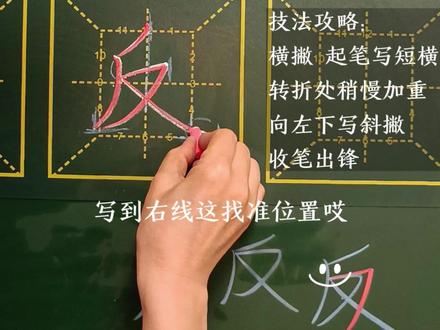 技法攻略.
横撇 起笔写短横
转折处稍慢加重
向左下写斜撇
收笔出锋
反
写到右线这找准位置哎
反 反